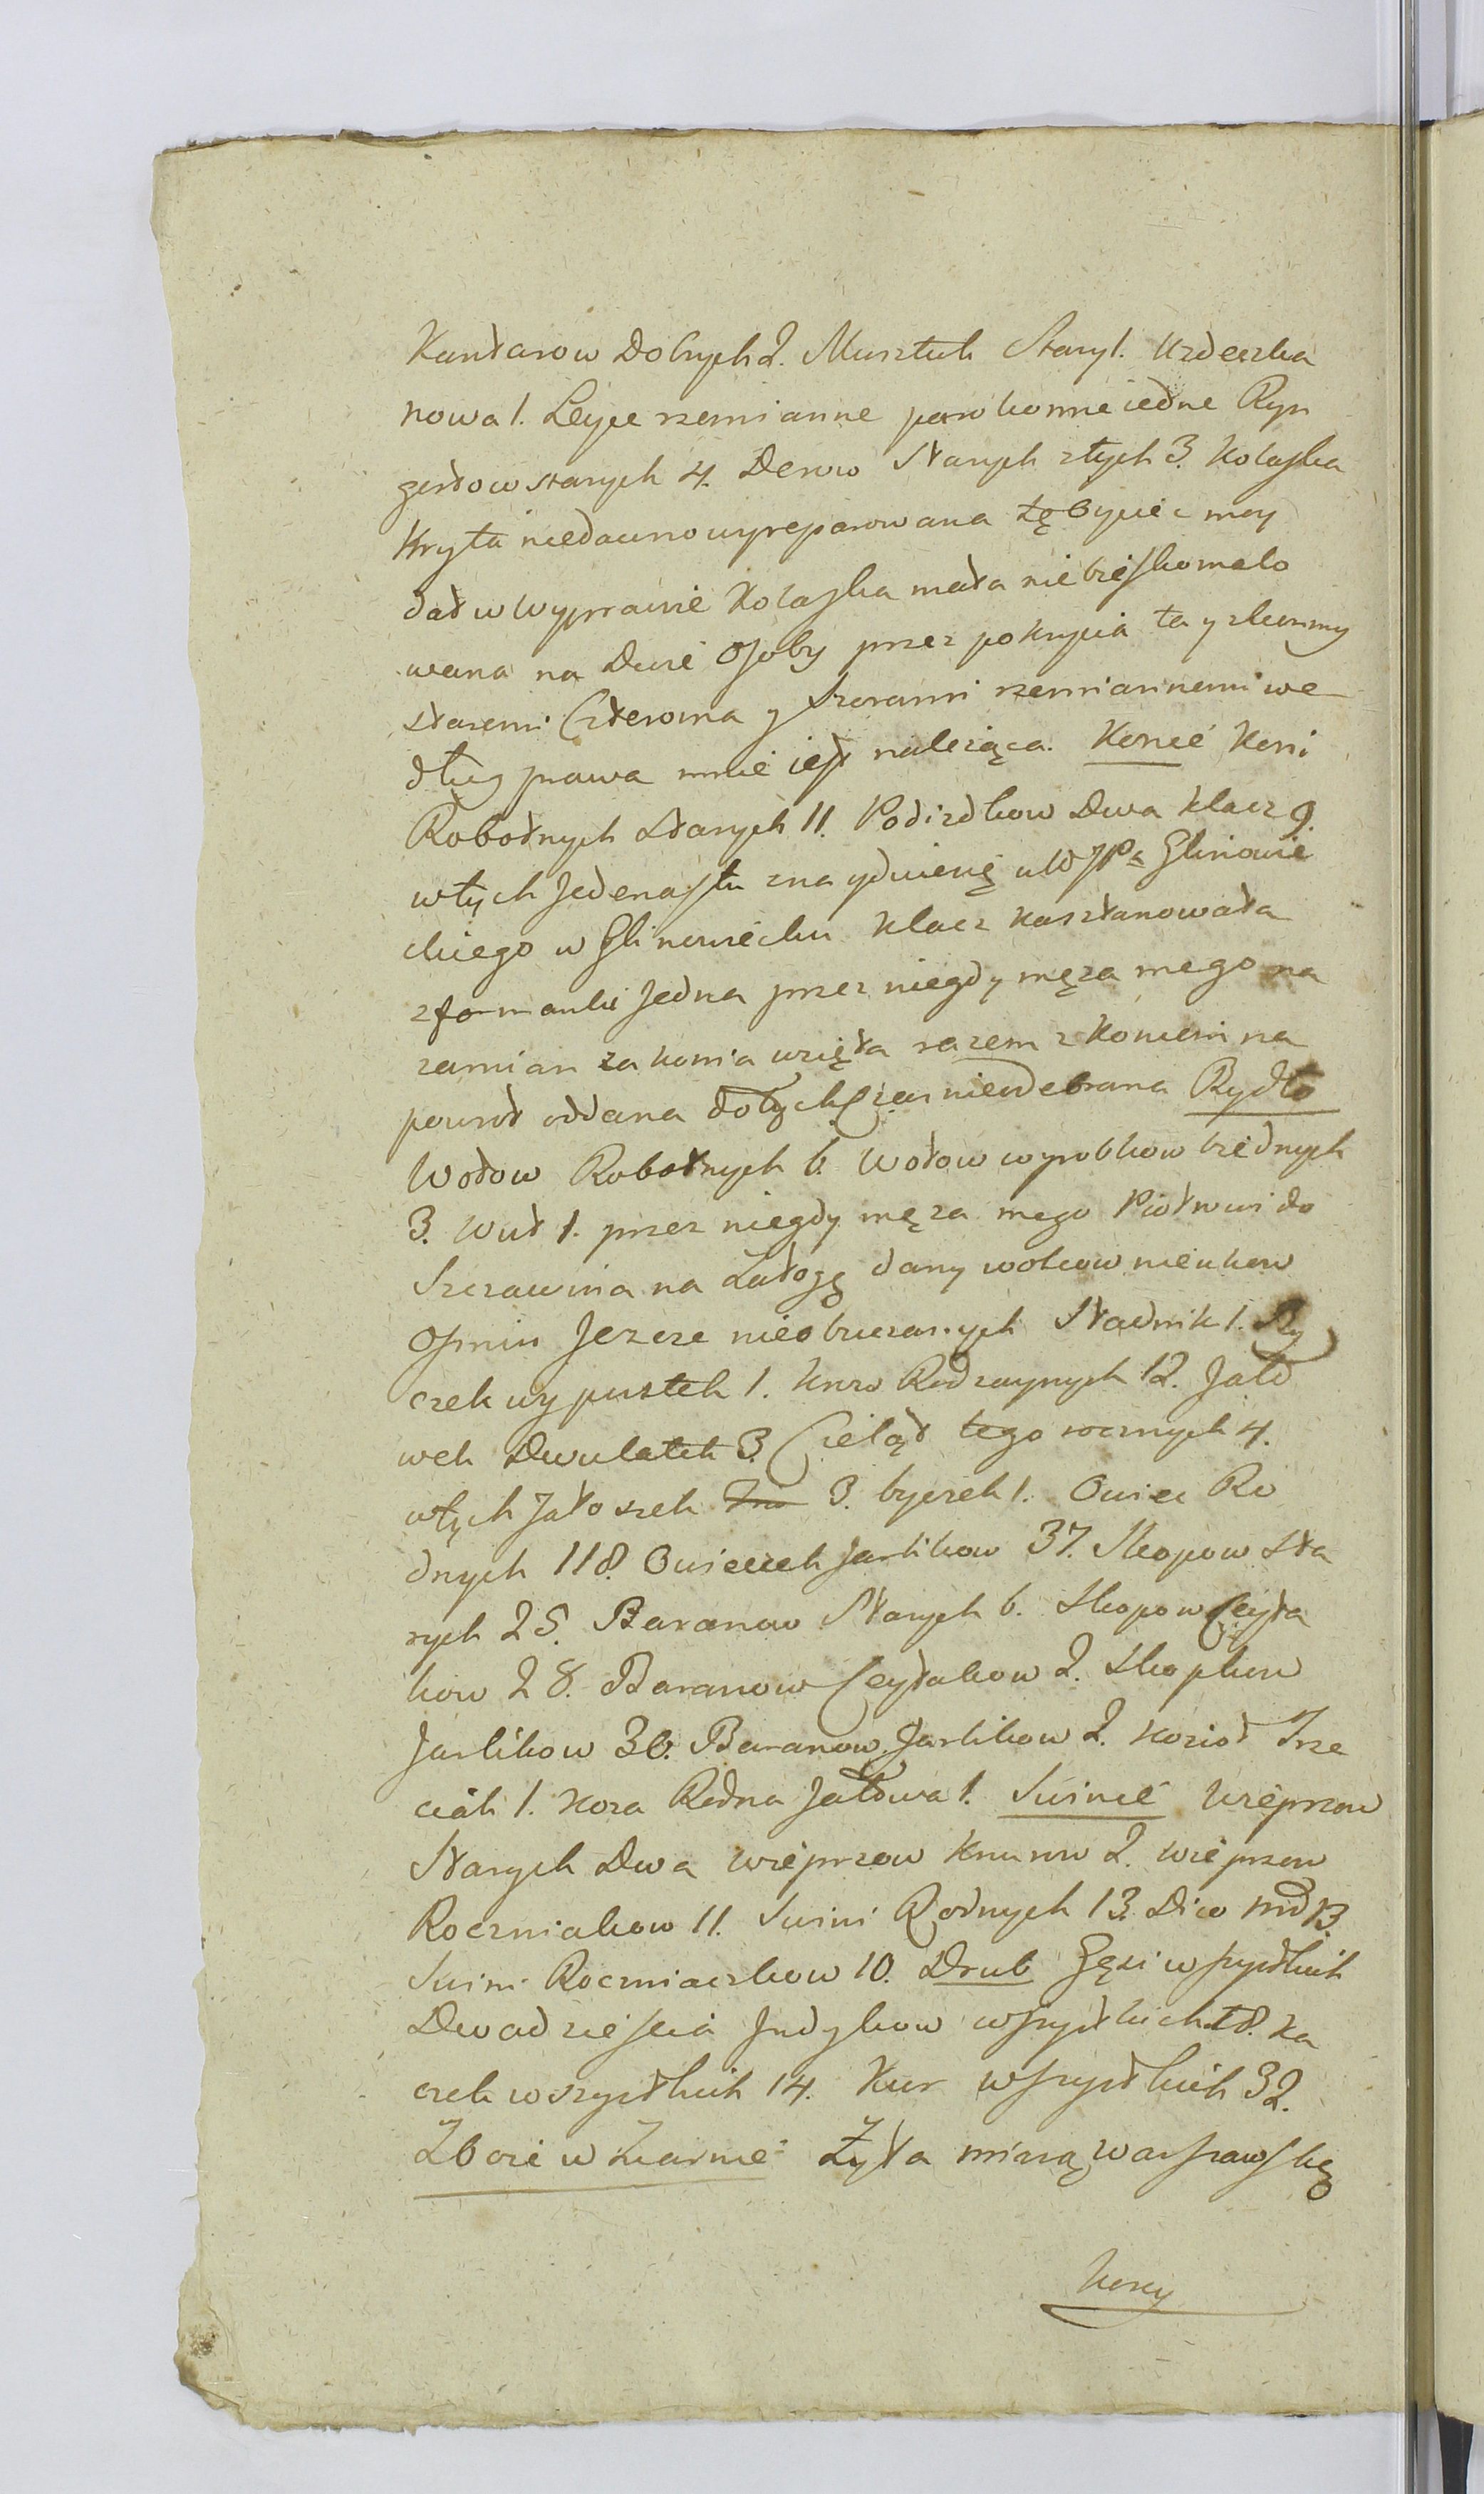 Kantarow Dobrych 2. Musztuk Stary 1. Uzdeczka
nowa 1. Leyce rzemianne parokonne iedne Ryn
gortow starych 4. Derow Starych złych 3. Kolaska
Kryta niedawno wyreparowana tę Oyciec moy
dał w wyprawie Kolaska mała niebiesko malo
wana na Dwie Osoby przez pokrycia ta y z konimy
staremi Czterema y szorami rzemiannemi we
dług prawa mnie iest należąca. Konie Koni
Robotnych Starych 11. Podizdkow Dwa klacz 9.
wtych Jedenastu znayduiesię u W JPa Glinowie
ckiego w Glinowiecku Klacz kasztanowata
z formanki Jedna przez niegdy męza mego na
zamian za konia wzięta razem z koniem na
powrot oddana dotychczas nieodebrana Rydło
Wołow Robotnych 6. Wołow wyrobkow biednych
3. Wuł 1. przez niegdy męza mego Piotrowi do
Szczawina na Załogę dany wolcow nieukow
Osmiu Jezcze nieobuczanych Stadnik 1. By
czek wypustek 1. Krów Rodzaynych 12. Jało
wek Dwulatek 3. Cieląt tego rocznych 4.
wtych Jałoszek 3. byczek 1. Owiec Ro
dnych 118. Owieczek Jarlikow 37. Skopow Sta
rych 25. Baranow Starych 6. Skopow Ceyta
kow 28. Baranow Ceytakow 2. Skopkow
Jarlikow 36. Baranow Jarlikow 2. Kozioł Trze
ciak 1. Koza Rodna Jałowa 1. Swinie Wieprzow
Starych Dwa wieprzow Knurow 2. wieprzow
Roczniakow 11. Swini Rodnych 13.
Swini Roczniaczkow 10. Drub Gęsi wszystkich
Dwadziescia Jndykow wszystkich 18. Ka
czek wszystkich 14. Kur wszystkich 32.
Zboże w Ziarnie Żyta miarą Warszawską
Korcy